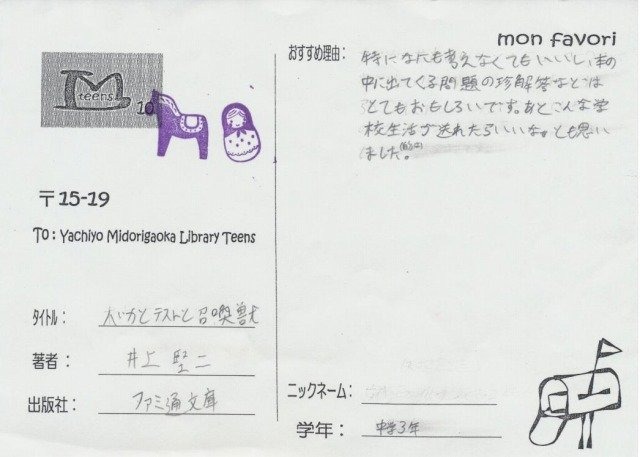 mon favori
TM
teens
10
おすすめ理由：
特になにも考えなくてもいいし、本の
中に出てくる問題の珍解答などは
とてもおもしろいです。あとこんな学
校生活が送れたらいいな。とも思い
ました。
〒15-19
To : Yachiyo Midorigaoka Library Teens
タイトル： バカとテストと召喚獣
著者： 井上堅二
出版社： ファミ通文庫
ニックネーム：
学年： 中学3年